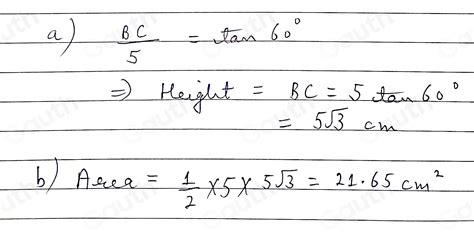 a) BC/5 = tan 60°
⇒ Height = BC = 5 tan 60°
= 5√3 cm
b) Area = 1/2 × 5 × 5√3 = 21.65 cm²